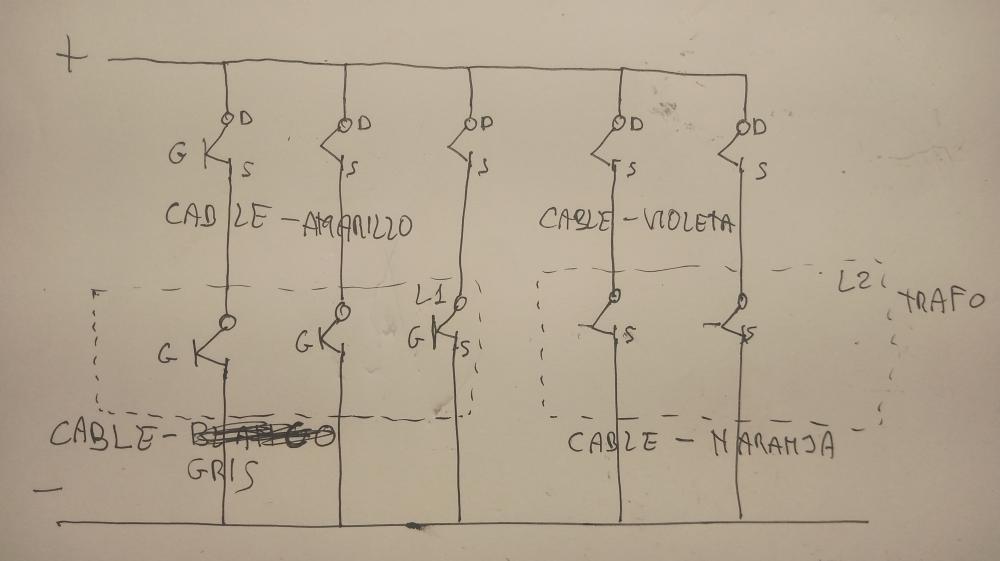 +
D D D D D
G S S S S S
CABLE - AMARILLO CABLE - VIOLETA
L1 L2 TRAFO
G G G S S S
CABLE - NARANJA
CABLE - GRIS
-